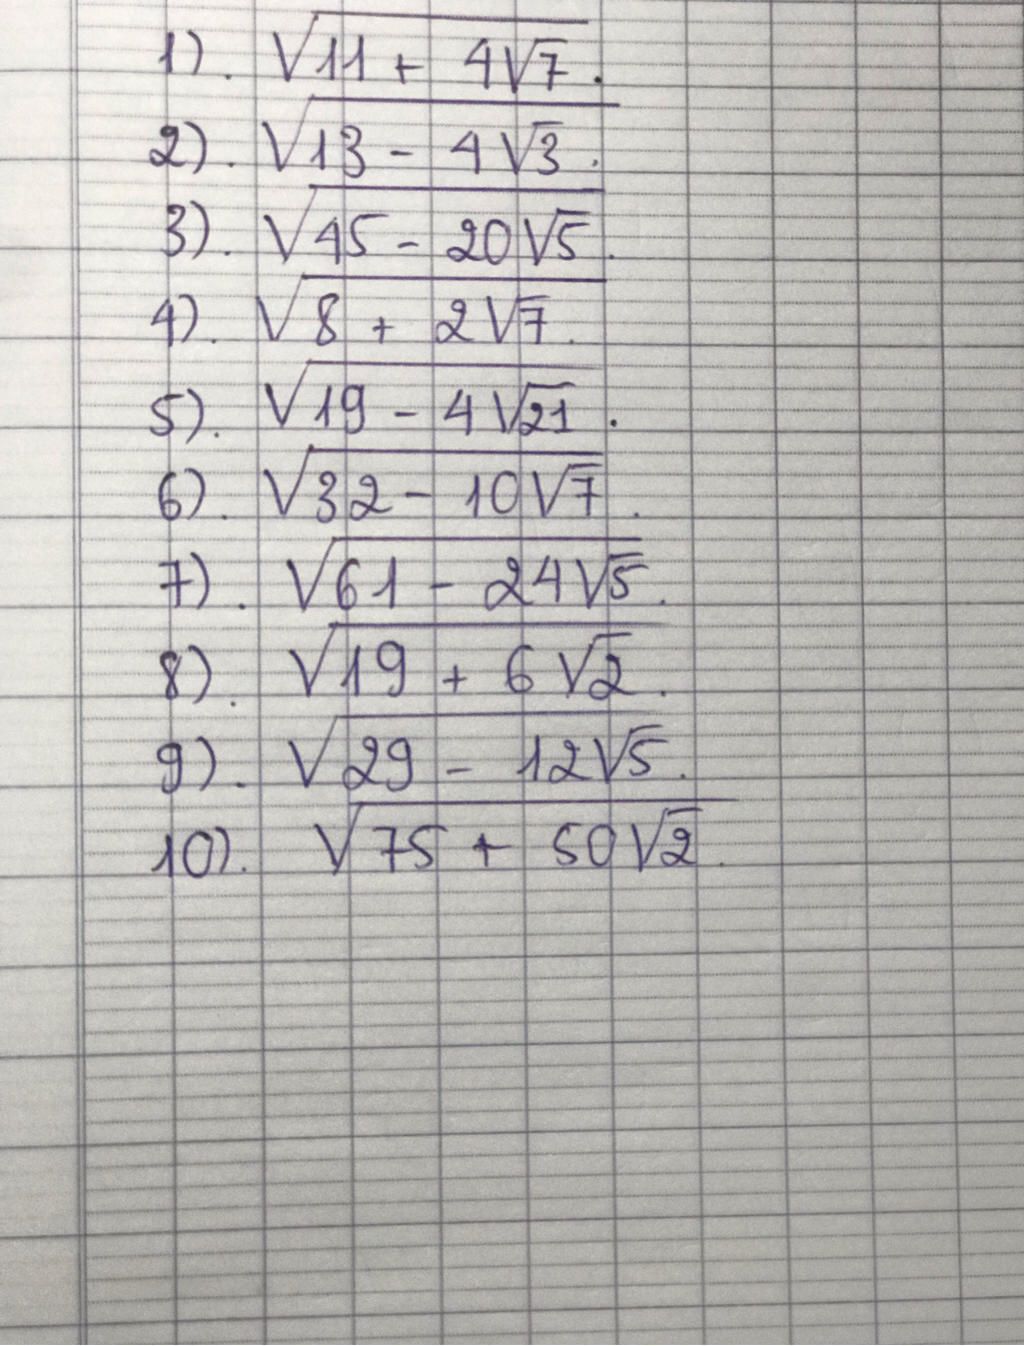 1). √(11 + 4√7).
2). √(13 - 4√3).
3). √(45 - 20√5).
4). √(8 + 2√7).
5). √(19 - 4√21).
6). √(32 - 10√7).
7). √(61 - 24√5).
8). √(19 + 6√2).
9). √(29 - 12√5).
10). √(75 + 50√2).